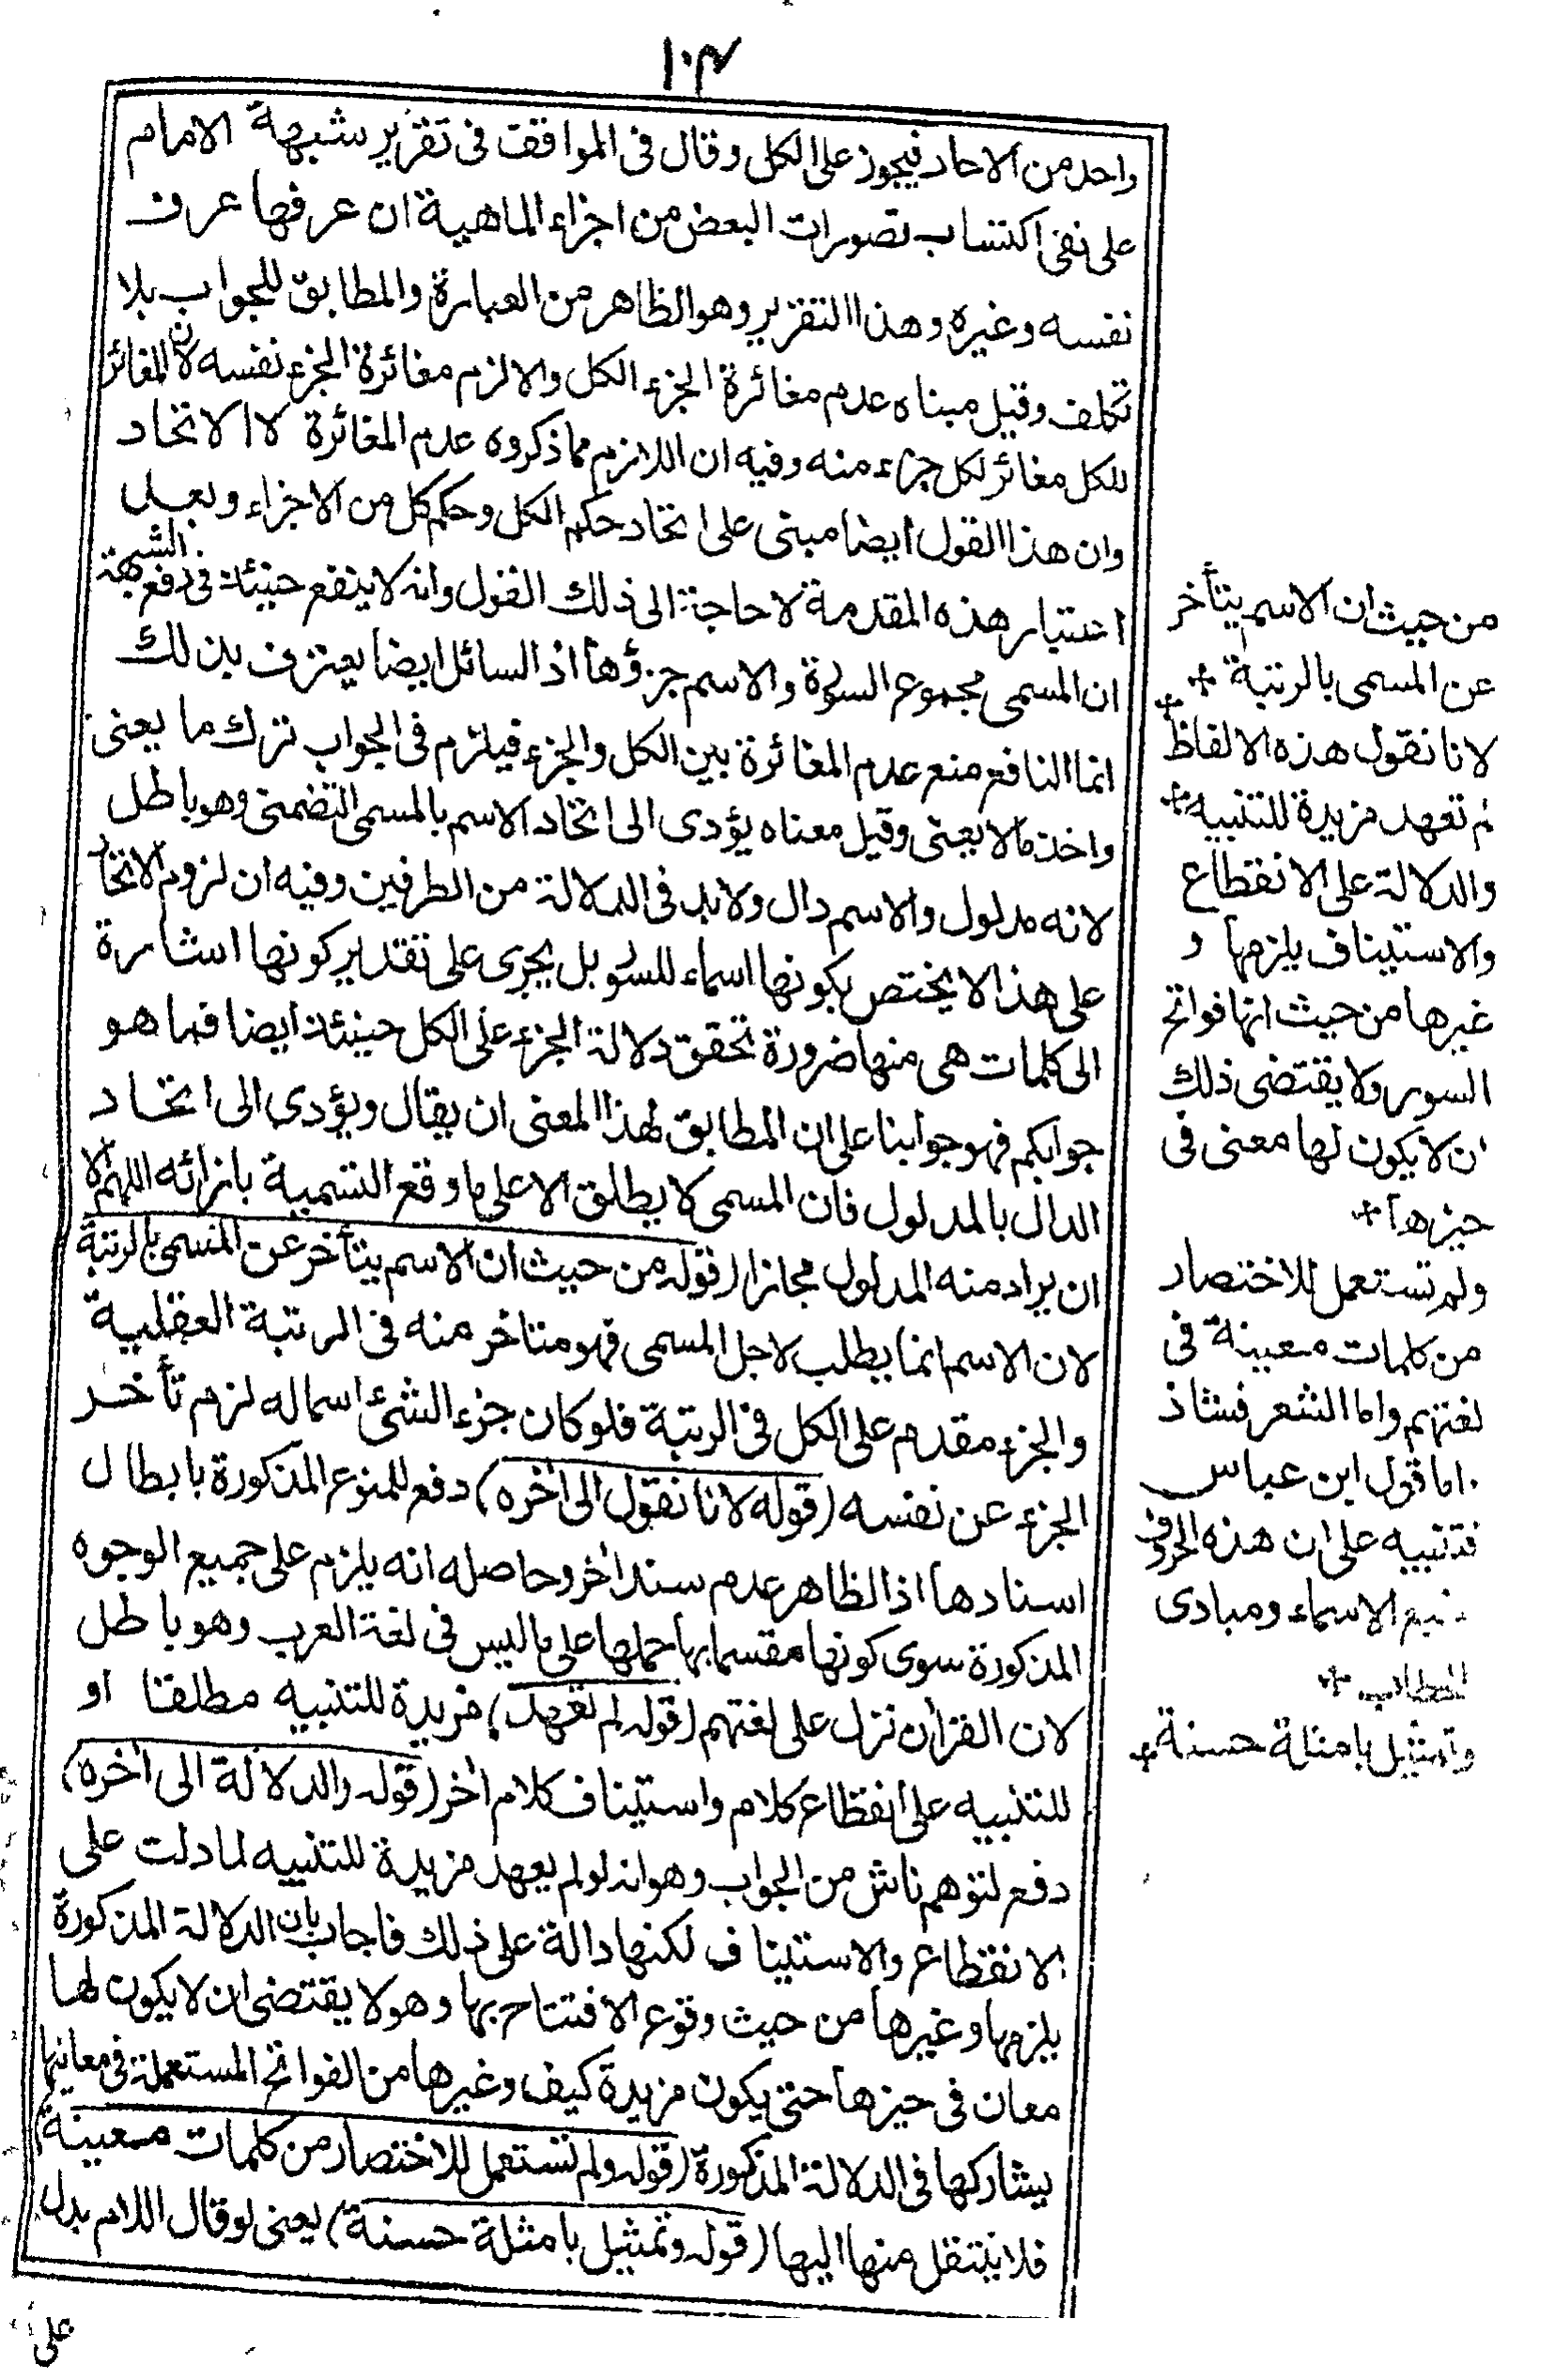 ١٠٣
واحد من الاحاد فيجوز على الكل وقال فى المواقف فى تقرير شبهة الامام
على نفى اكتساب تصورات البعض من اجزاء الماهية ان عرفها عرف
نفسه وغيره وهذا التقرير وهو الظاهر من العبارة والمطابق للجواب بلا
تكلف وقيل مبناه عدم مغائرة الجزء الكل والا لزم مغائرة الجزء نفسه لان المغائر
للكل مغائر لكل جزء منه وفيه ان اللازم مما ذكروه عدم المغائرة لا الاتحاد
وان هذا القول ايضا مبنى على اتحاد حكم الكل وحكم كل من الاجزاء وبعد
اعتبار هذه المقدمة لا حاجة الى ذلك القول وانه لا ينفع حينئذ فى دفع الشبهة
ان المسمى مجموع السورة والاسم جزؤها اذ السائل ايضا يعترف بذلك
انما النافع منع عدم المغائرة بين الكل والجزء فيلزم فى الجواب ترك ما يعنى
واخذ ما لا يعنى وقيل معناه يؤدى الى اتحاد الاسم بالمسمى التضمنى وهو باطل
لانه مدلول والاسم دال ولابد فى الدلالة من الطرفين وفيه ان لزوم الاتحاد
على هذا لا يختص بكونها اسماء للسور بل يجرى على تقدير كونها اشارة
الى كلمات هى منها ضرورة تحقق دلالة الجزء على الكل حينئذ ايضا فما هو
جوابكم فهو جوابنا على ان المطابق لهذا المعنى ان يقال ويؤدى الى اتحاد
الدال بالمدلول فان المسمى لا يطلق الا على ما وقع التسمية بازائه اللهم الا
ان يراد منه المدلول مجازا (قوله من حيث ان الاسم يتأخر عن المسمى بالرتبة
لان الاسم انما يطلب لاجل المسمى فهو متاخر منه فى المرتبة العقلية
والجزء مقدم على الكل فى الرتبة فلو كان جزء الشئ اسما له لزم تأخر
الجزء عن نفسه (قوله لانا نقول الى اٰخره) دفع للمنوع المذكورة بابطال
اسنادها اذ الظاهر عدم سند اٰخر وحاصله انه يلزم على جميع الوجوه
المذكورة سوى كونها مقسما بها حملها على ما ليس فى لغة العرب وهو باطل
لان القراٰن نزل على لغتهم (قوله لم تعهد) مزيدة للتنبيه مطلقا او
للتنبيه على انقطاع كلام واستيناف كلام اٰخر (قوله والدلالة الى اٰخره)
دفع لتوهم ناش من الجواب وهو انه لو لم يعهد مزيدة للتنبيه لما دلت على
الانقطاع والاستيناف لكنها دالة على ذلك فاجاب بان الدلالة المذكورة
يلزمها وغيرها من حيث وقوع الافتتاح بها وهو لا يقتضى ان لا يكون لها
معان فى حيزها حتى يكون مزيدة كيف وغيرها من الفواتح المستعملة فى معانيها
يشاركها فى الدلالة المذكورة (قوله ولم تستعمل للاختصار من كلمات معينة)
فلا ينتقل منها اليها (قوله وتمثيل بامثلة حسنة) يعنى لو قال اللام يدل
على
من حيث ان الاسم يتأخر
عن المسمى بالرتبة
لانا نقول هذه الالفاظ
لم تعهد مزيدة للتنبيه
والدلالة على الانقطاع
والاستيناف يلزمها و
غيرها من حيث انها فواتح
السور ولا يقتضى ذلك
ان لا يكون لها معنى فى
حيزها
ولم تستعمل للاختصار
من كلمات معينة فى
لغتهم واما الشعر فشاذ
اما قول ابن عباس
فتنبيه على ان هذه الحروف
منبع الاسماء ومبادى
الخطاب
وتمثيل بامثلة حسنة